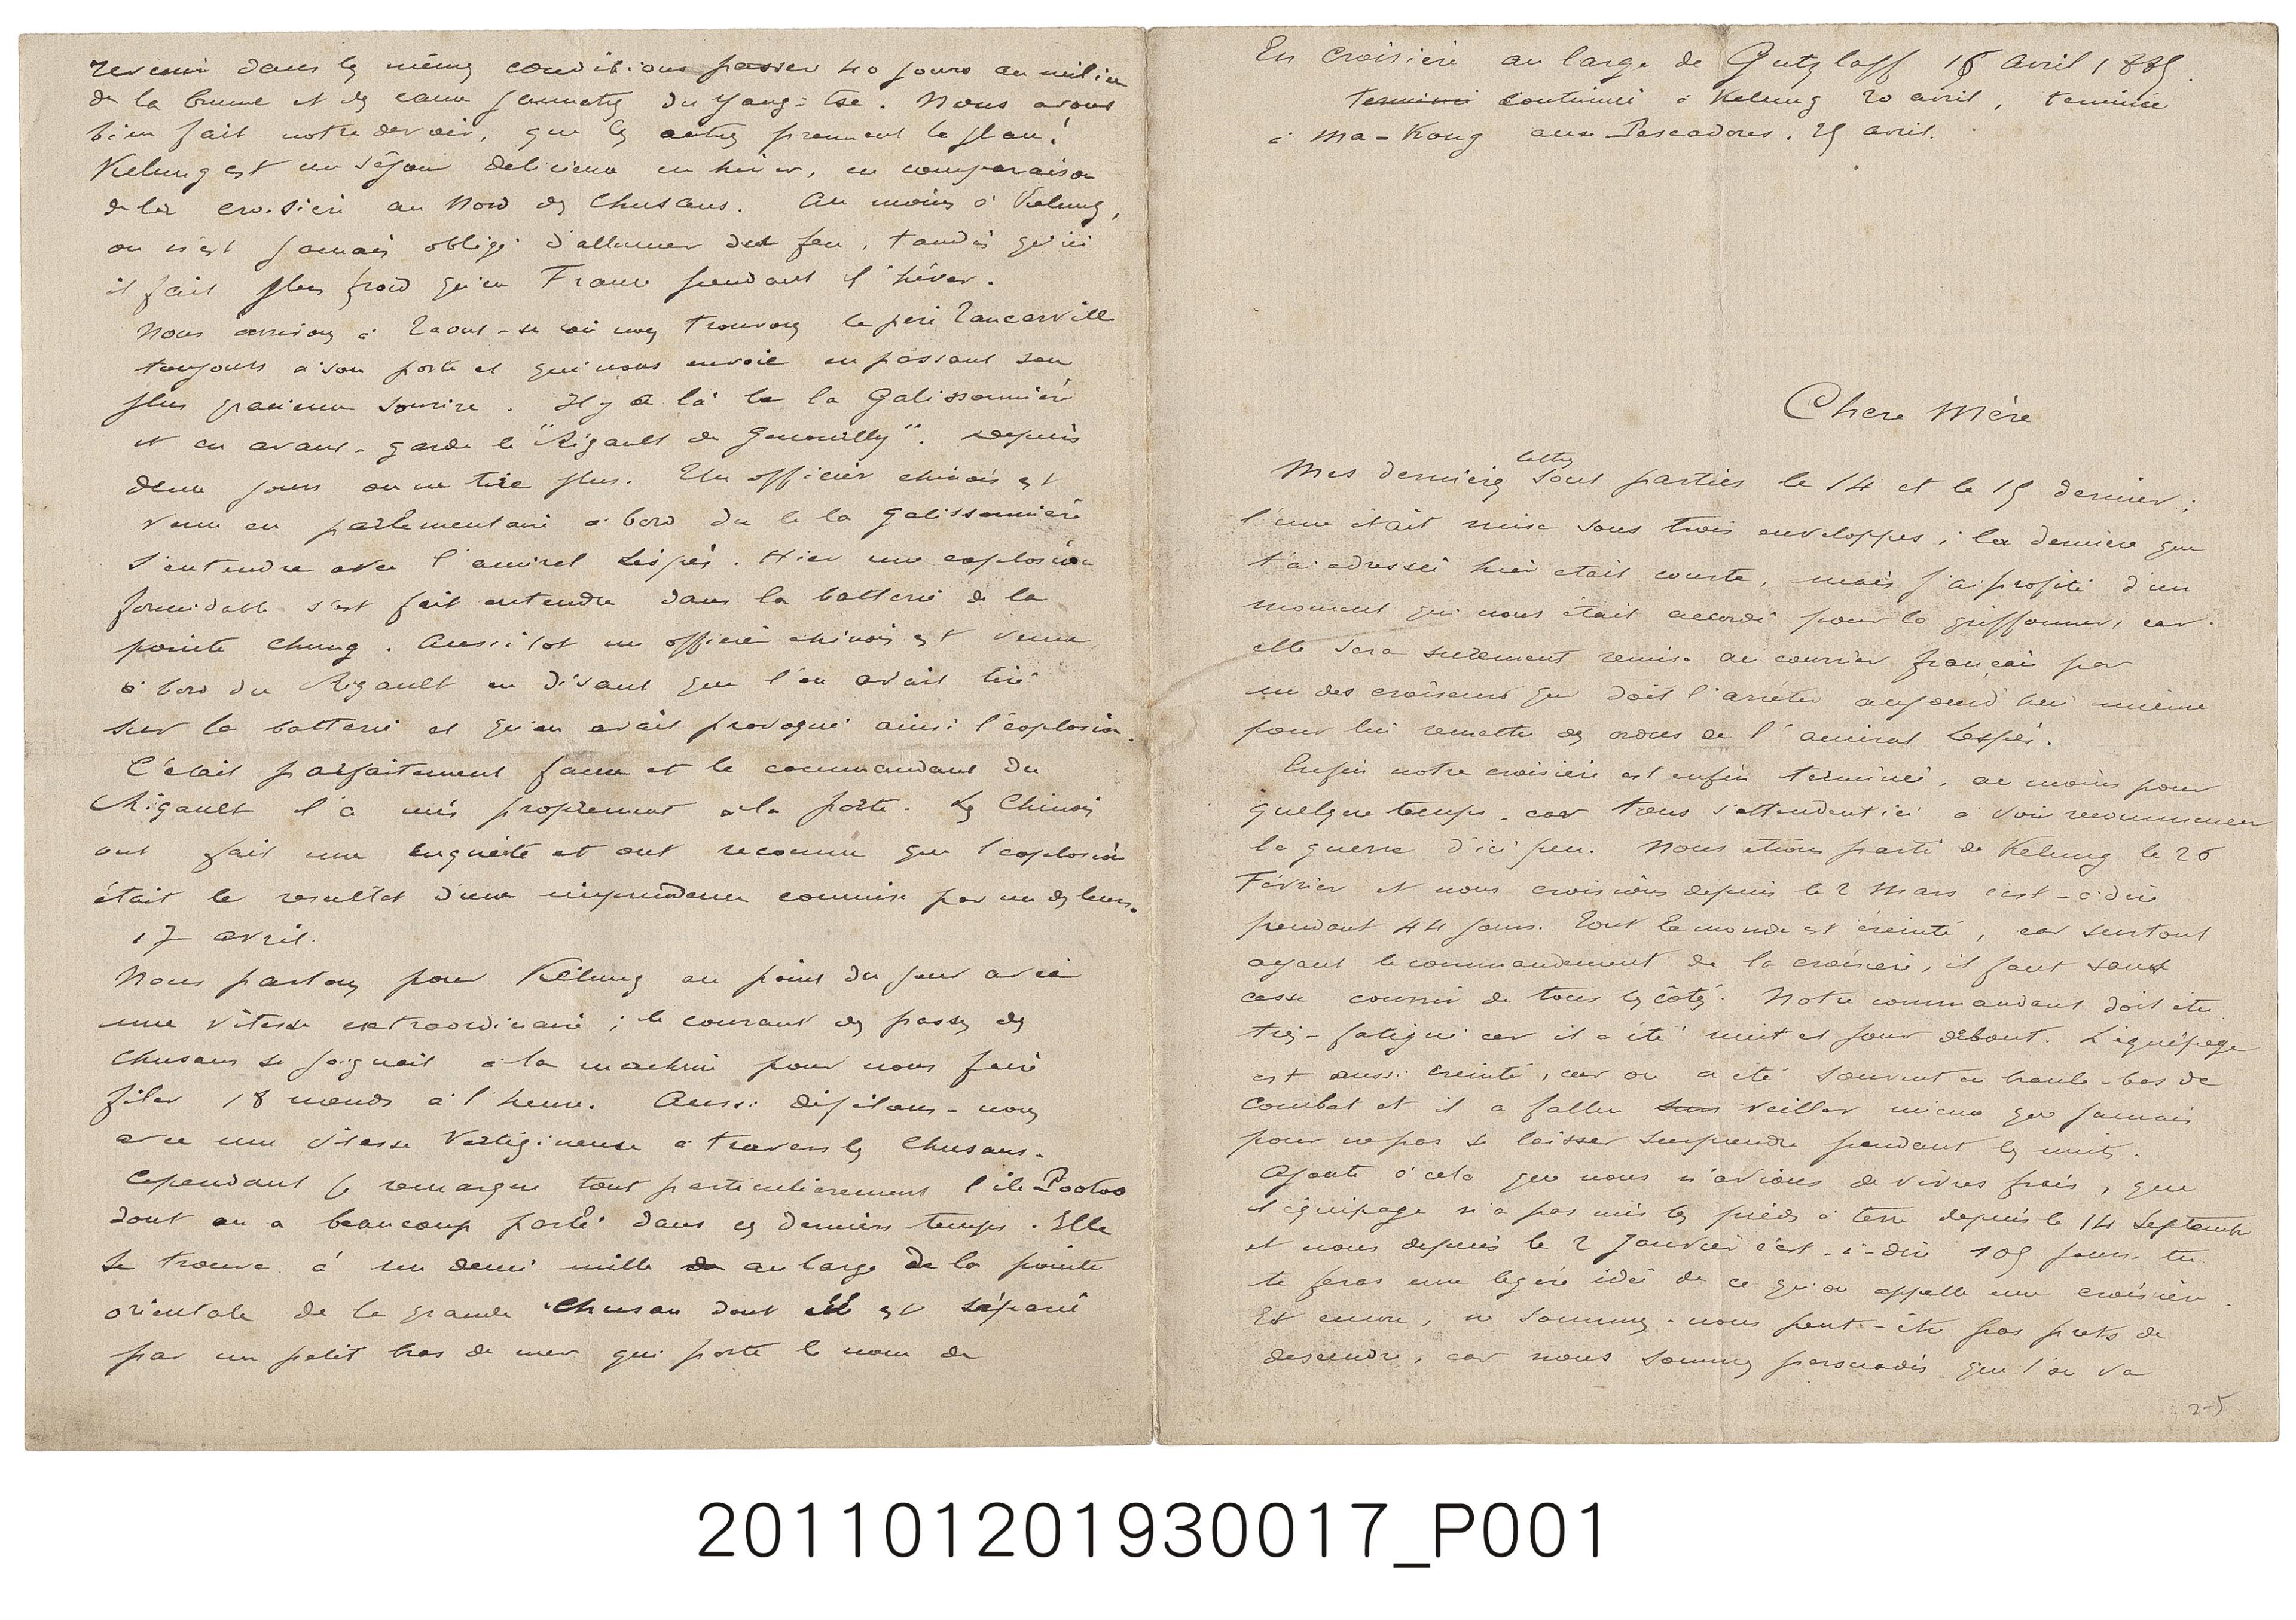 En croisière au large de Gutzlaff 16 avril 1885.
Terminé continuée à Kelung 20 avril, terminée
à Ma-Kong aux Pescadores. 25 avril.
Chere Mère
lettres
Mes dernières sont parties le 14 et le 15 dernier ;
l'une était mise sous trois enveloppes ; la dernière que
t'ai adressée hier etait courte, mais j'ai profité d'un
moment qui nous était accordé pour la griffonner, car
elle sera surement remise au courrier français par
un des croiseurs qui doit l'arrêter aujourd'hui même
pour lui remettre des ordres de l'amiral Lespès.
Enfin notre croisière est enfin terminée, au moins pour
quelque temps, car tous s'attendent ici à voir recommencer
la guerre d'ici peu. Nous étions parti de Kelung le 26
Février et nous croisions depuis le 2 Mars c'est-à-dire
pendant 44 jours. Tout le monde est éreinté, car surtout
ayant le commandement de la croisière, il faut sans
cesse courrir de tous les côtés. Notre commandant doit être
très-fatigué car il a été nuit et jour debout. L'équipage
est aussi éreinté, car on a été souvent en branle-bas de
combat et il a fallu veiller mieux que jamais
pour ne pas se laisser surprendre pendant les nuits.
Ajoute à cela que nous n'avions de vivres frais, que
l'équipage n'a pas mis les pieds à terre depuis le 14 Septembre
et nous depuis le 2 Janvier c'est-à-dire 105 jours tu
te feras une légère idée de ce qu'on appelle une croisière.
Et encore, ne sommes-nous peut-être pas prets de
descendre, car nous sommes persuadés que l'on va
2-5
revenir dans les mêmes conditions passer 40 jours au milieu
de la brume et des eaux jaunatres du Yang-tse. Nous avons
bien fait notre devoir, que les autres prennent le flan !
Kelung est un séjour delicieux en hiver, en comparaison
de la croisière au Nord des Chusans. Au moins à Kelung,
on n'est jamais obligé d'allumer du feu, tandis qu'ici
il fait plus froid qu'en France pendant l'hiver.
Nous arrivons à où nous trouvons le père Tancarville
toujours à son poste et qui nous envoie en passant son
plus gracieux sourire. Il y a là le la Galissonnière
et en avant-garde le "Rigault de Genouilly". Depuis
deux jours on ne tire plus. Un officier chinois est
venu en parlementaire à bord du le la Galissonnière
s'entendre avec l'amiral Lespès. Hier une explosion
formidable s'est fait entendre dans la batterie de la
pointe Chung. Aussitot un officier chinois est venu
à bord du Rigault en disant que l'on avait tiré
sur la batterie et qu'on avait provoqué ainsi l'explosion.
C'était parfaitement faux et le commandant du
Rigault l'a mis proprement à la porte. Les Chinois
ont fait une enquête et ont reconnu que l'explosion
était le resultat d'une imprudence commise par un des leurs.
17 avril.
Nous partons pour Kélung au point du jour avec
une vitesse extraordinaire ; le courant des passes des
Chusans se joignait à la machine pour nous faire
filer 18 nœuds à l'heure. Aussi défilons-nous
avec une vitesse vertigineuse à travers les Chusans.
Cependant je remarque tout particulièrement l'ile Pootoo
dont on a beaucoup parlé dans ces derniers temps. Elle
se trouve à un demi mille de au large de la pointe
orientale de la grande Chusan dont elle est séparée
par un petit bras de mer qui porte le nom de
201101201930017_P001